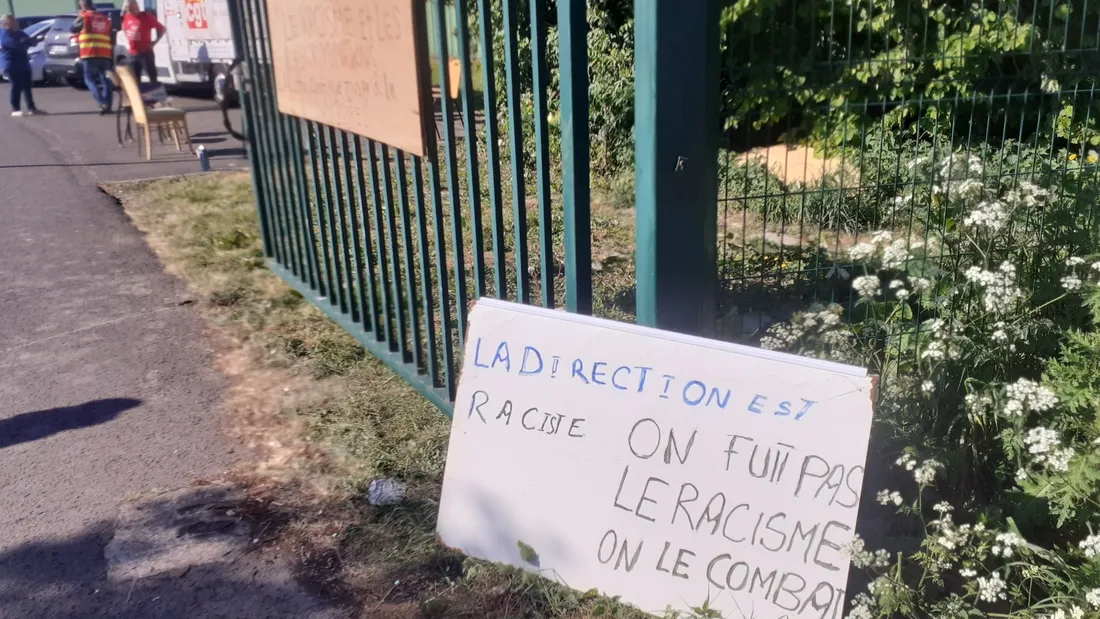 cgt
LE RACISME ET LES
LA DIRECTION EST
RACISTE
ON FUIT PAS
LE RACISME
ON LE COMBAT